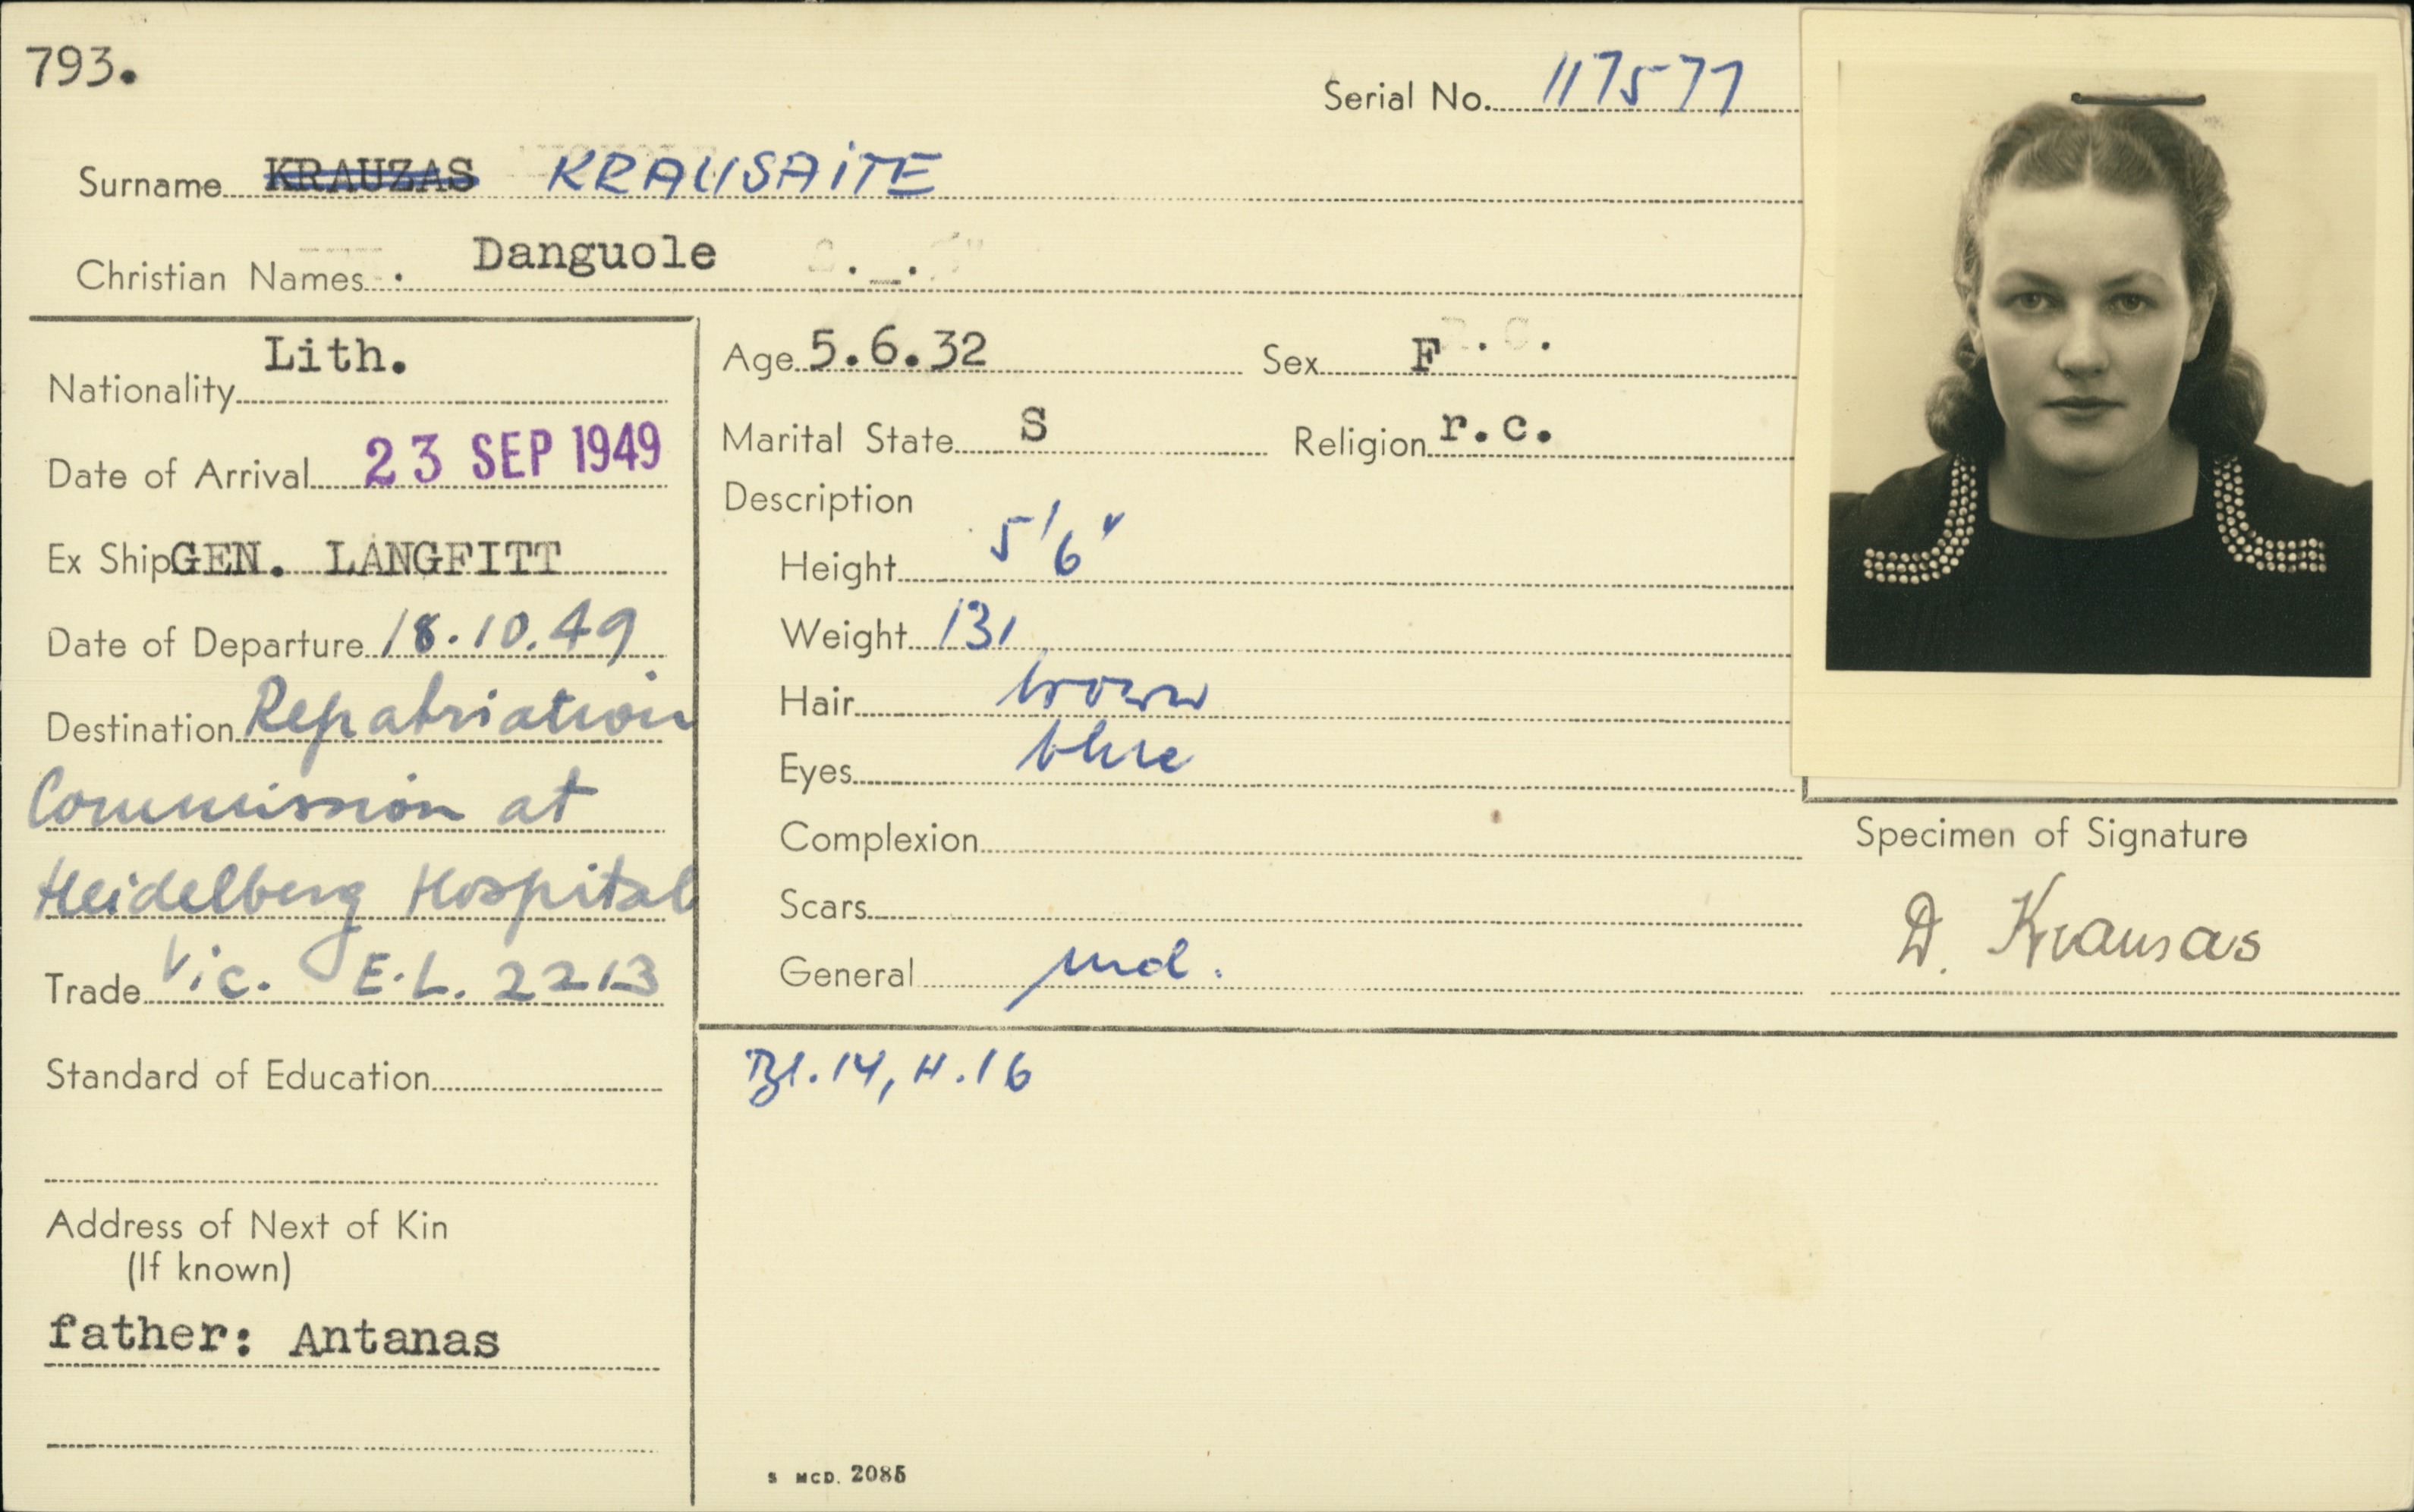 793.
Serial No. 117577
Surname KRAUZAS KRAUSAiTE
Christian Names . Danguole
Nationality Lith.
Date of Arrival 23 SEP 1949
Ex Ship GEN. LANGFITT
Date of Departure 18.10.49
Destination Repatriation
Commission at
Heidelberg Hospital
Vic. E.L. 2213
Trade
Standard of Education
Address of Next of Kin
(If known)
father: Antanas
Age 5.6.32 Sex F
Marital State S Religion r.c.
Description
Height 5'6"
Weight 131
Hair brown
Eyes blue
Complexion
Scars
General med.
Bl.14, H.16
S MCD. 2085
Specimen of Signature
D. Krausas